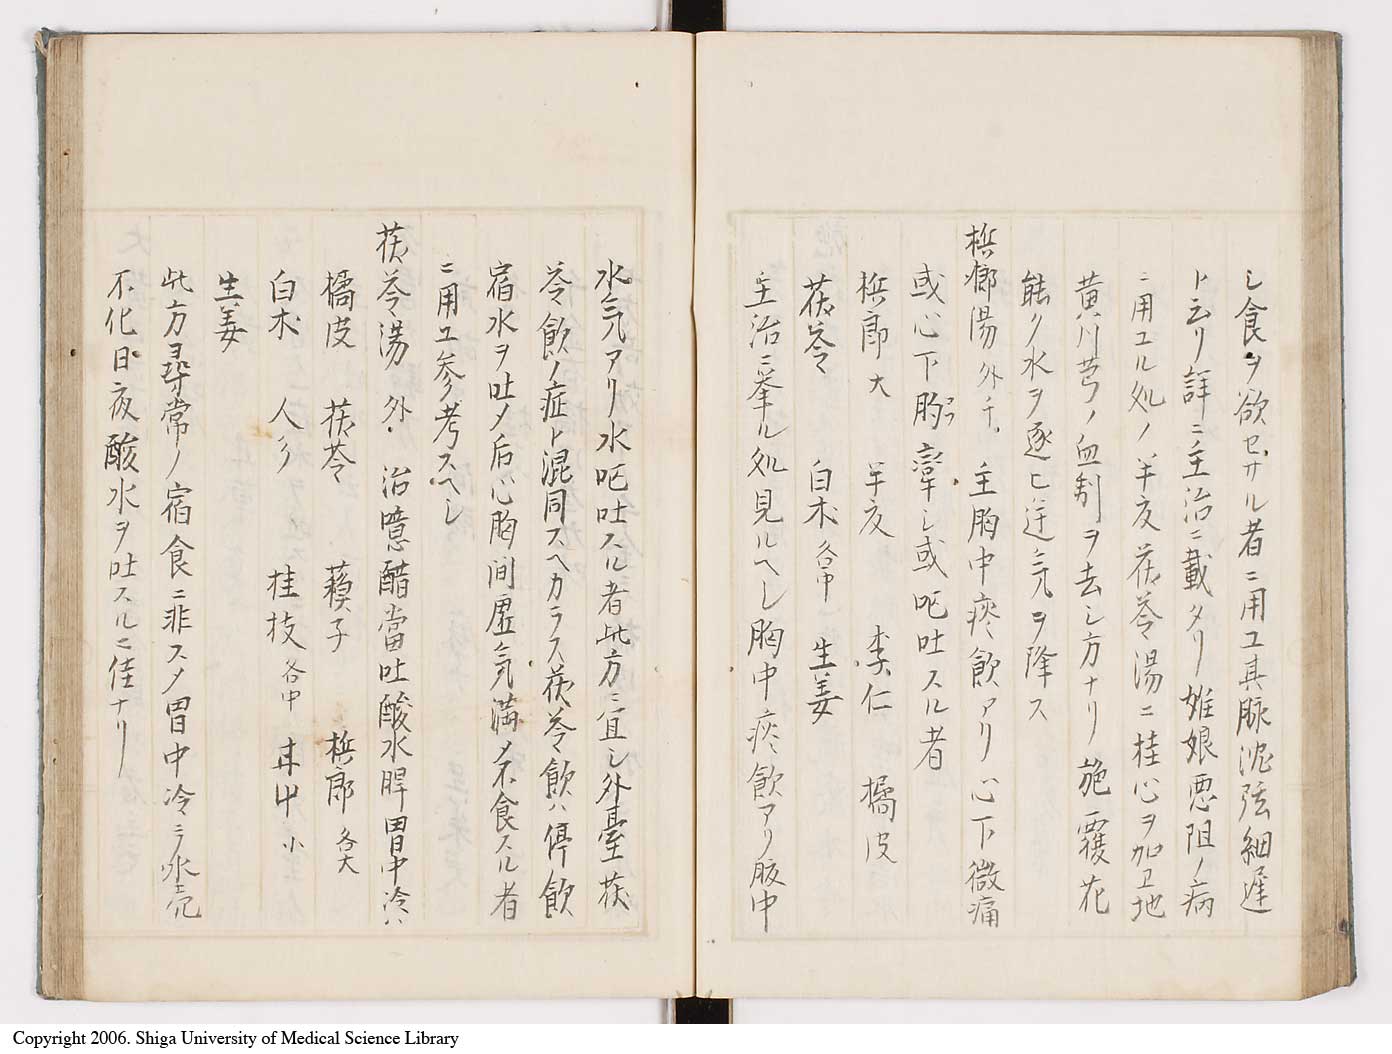 シ食ヲ欲セサル者ニ用ユ其脉沈弦細遅
ト云リ詳ニ主治ニ載タリ娘悪阻ノ病
ニ用ユル処ノ半夏茯苓湯ニ桂心ヲ加エ地
黄川芎ノ血剤ヲ去シ方ナリ旋覆花
能ク水ヲ逐ヒ逆気ヲ降ス
檳榔湯外千主胸中痰飲アリ心下微痛
或心下胸攣シ或呕吐スル者
檳郎大 半夏 李仁 橘皮
茯苓 白朮各中 生姜
主治ニ挙ル処見ルヘシ胸中痰飲アリ腹中
水気アリ水呕吐スル者此方ニ宜シ外臺茯
苓飲ノ症ト混同スヘカラス茯苓飲ハ停飲
宿水ヲ吐メ后心胸间虚気満メ不食スル者
ニ用ユ参考スヘシ
茯苓湯 外 治噫醋當吐酸水脾胃中冷ハ
橘皮 茯苓 蘓子 檳郎各大
白朮 人参 桂枝各中 甘中小
生姜
此方尋常ノ宿食ニ非スメ胃中冷ニ水穀
不化日夜酸水ヲ吐スルニ佳ナリ
Copyright 2006. Shiga University of Medical Science Library